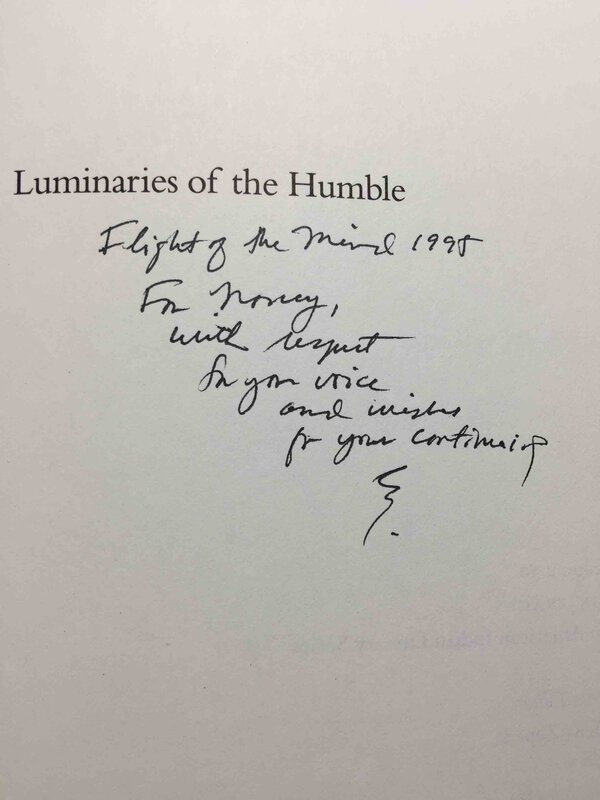 Luminaries of the Humble
Flight of the Mind 1995
For Nancy,
with respect
for your voice
and wishes
for your continuing
E.